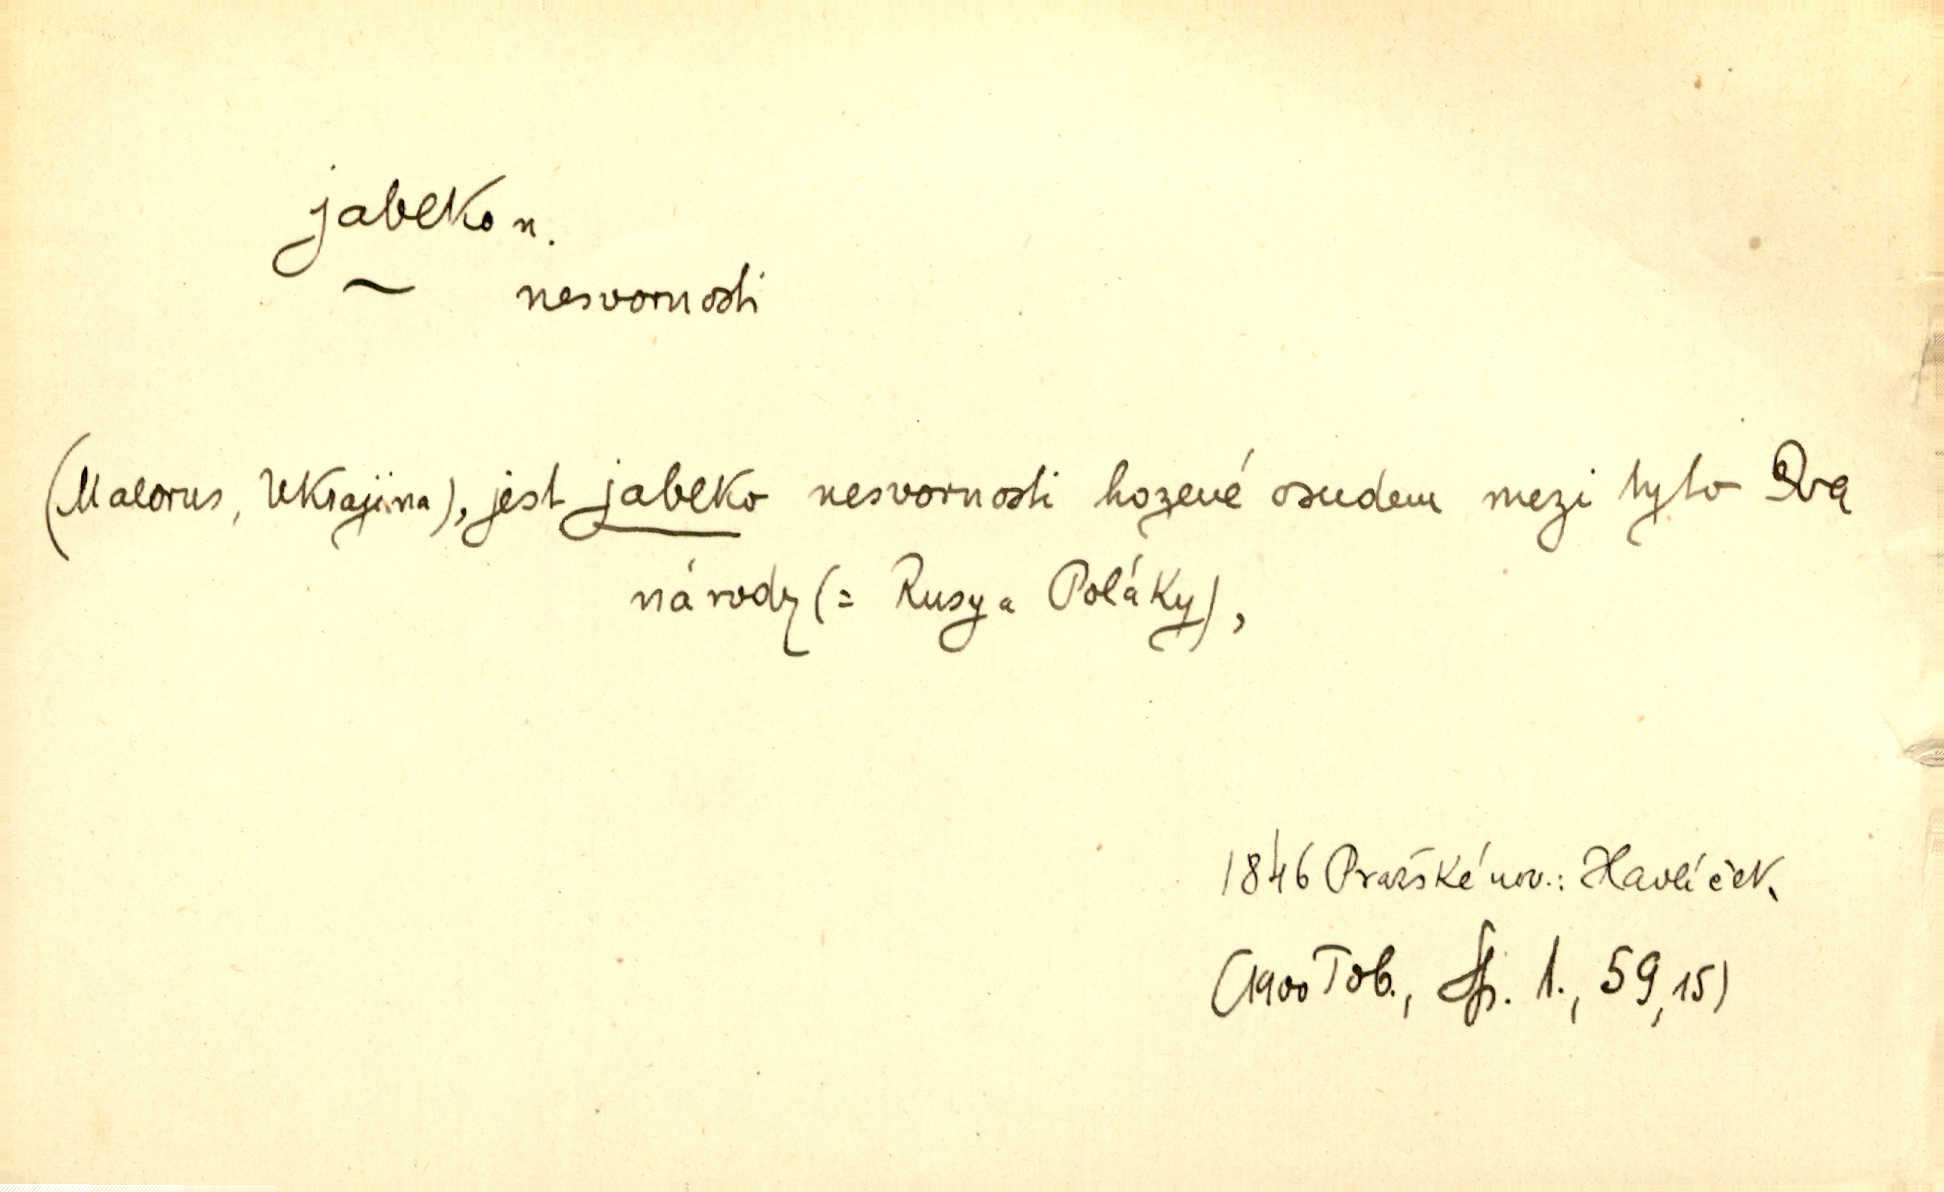 jablko n.
~ nesvornosti
(Malorus, Ukrajina), jest jablko nesvornosti hozené osudem mezi tyto dva
národy (= Rusy a Poláky),
1846 Pražské nov.: Havlíček,
(1900 Tob., Sp. 1., 59,15)